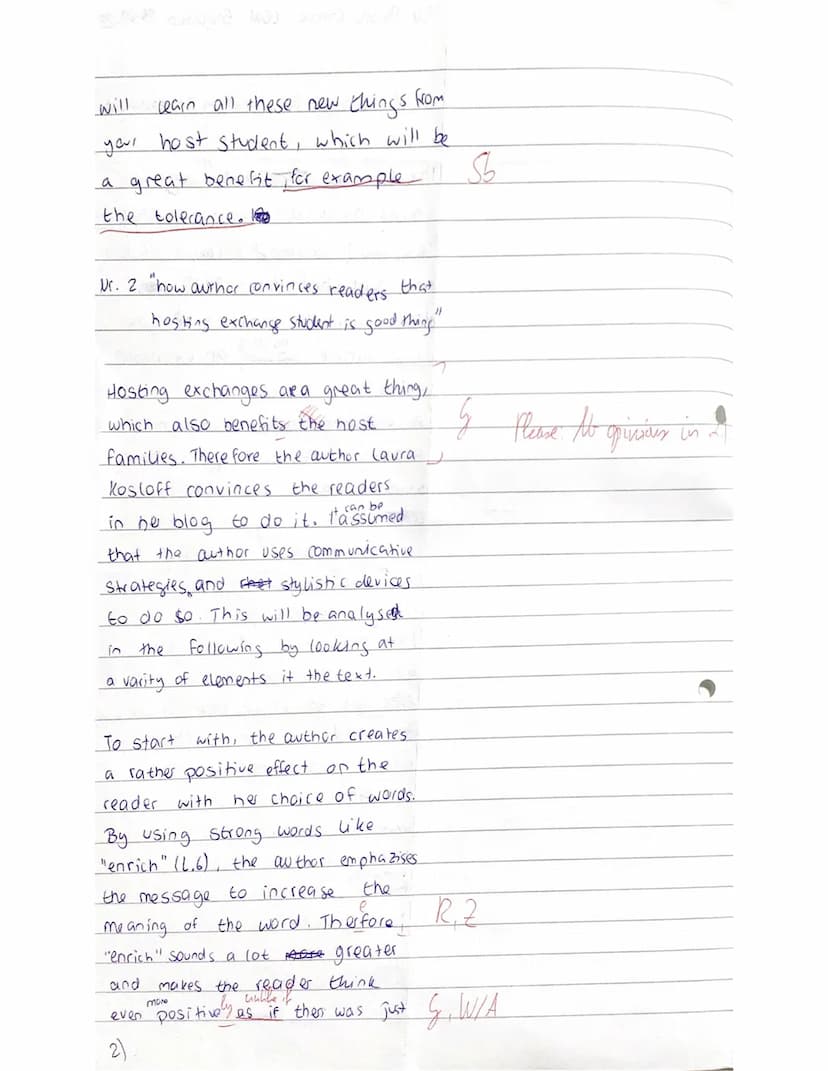 will learn all these new things from
your host student, which will be
a great benefit, for example Sb
the tolerance.
Nr. 2 "how author convinces readers that
hosting exchange student is good thing"
Hosting exchanges are a great thing,
which also benefits the host
families. Therefore the author Laura
Please No opinion in 2)
Kosloff convinces the readers
in he blog to do it. It can be assumed
that the author uses communicative
strategies, and stylistic devices
to do so. This will be analysed
in the following by looking at
a varity of elements it the text.
To start with, the author creates
a rather positive effect on the
reader with her choice of words.
By using strong words like
"enrich" (L.6), the author emphazises
the message to increase the
meaning of the word. Therfore, e R, Z
"enrich" sounds a lot greater
and makes the reader think
even more positive ly as if unlike if ther was just G, W/A
2)